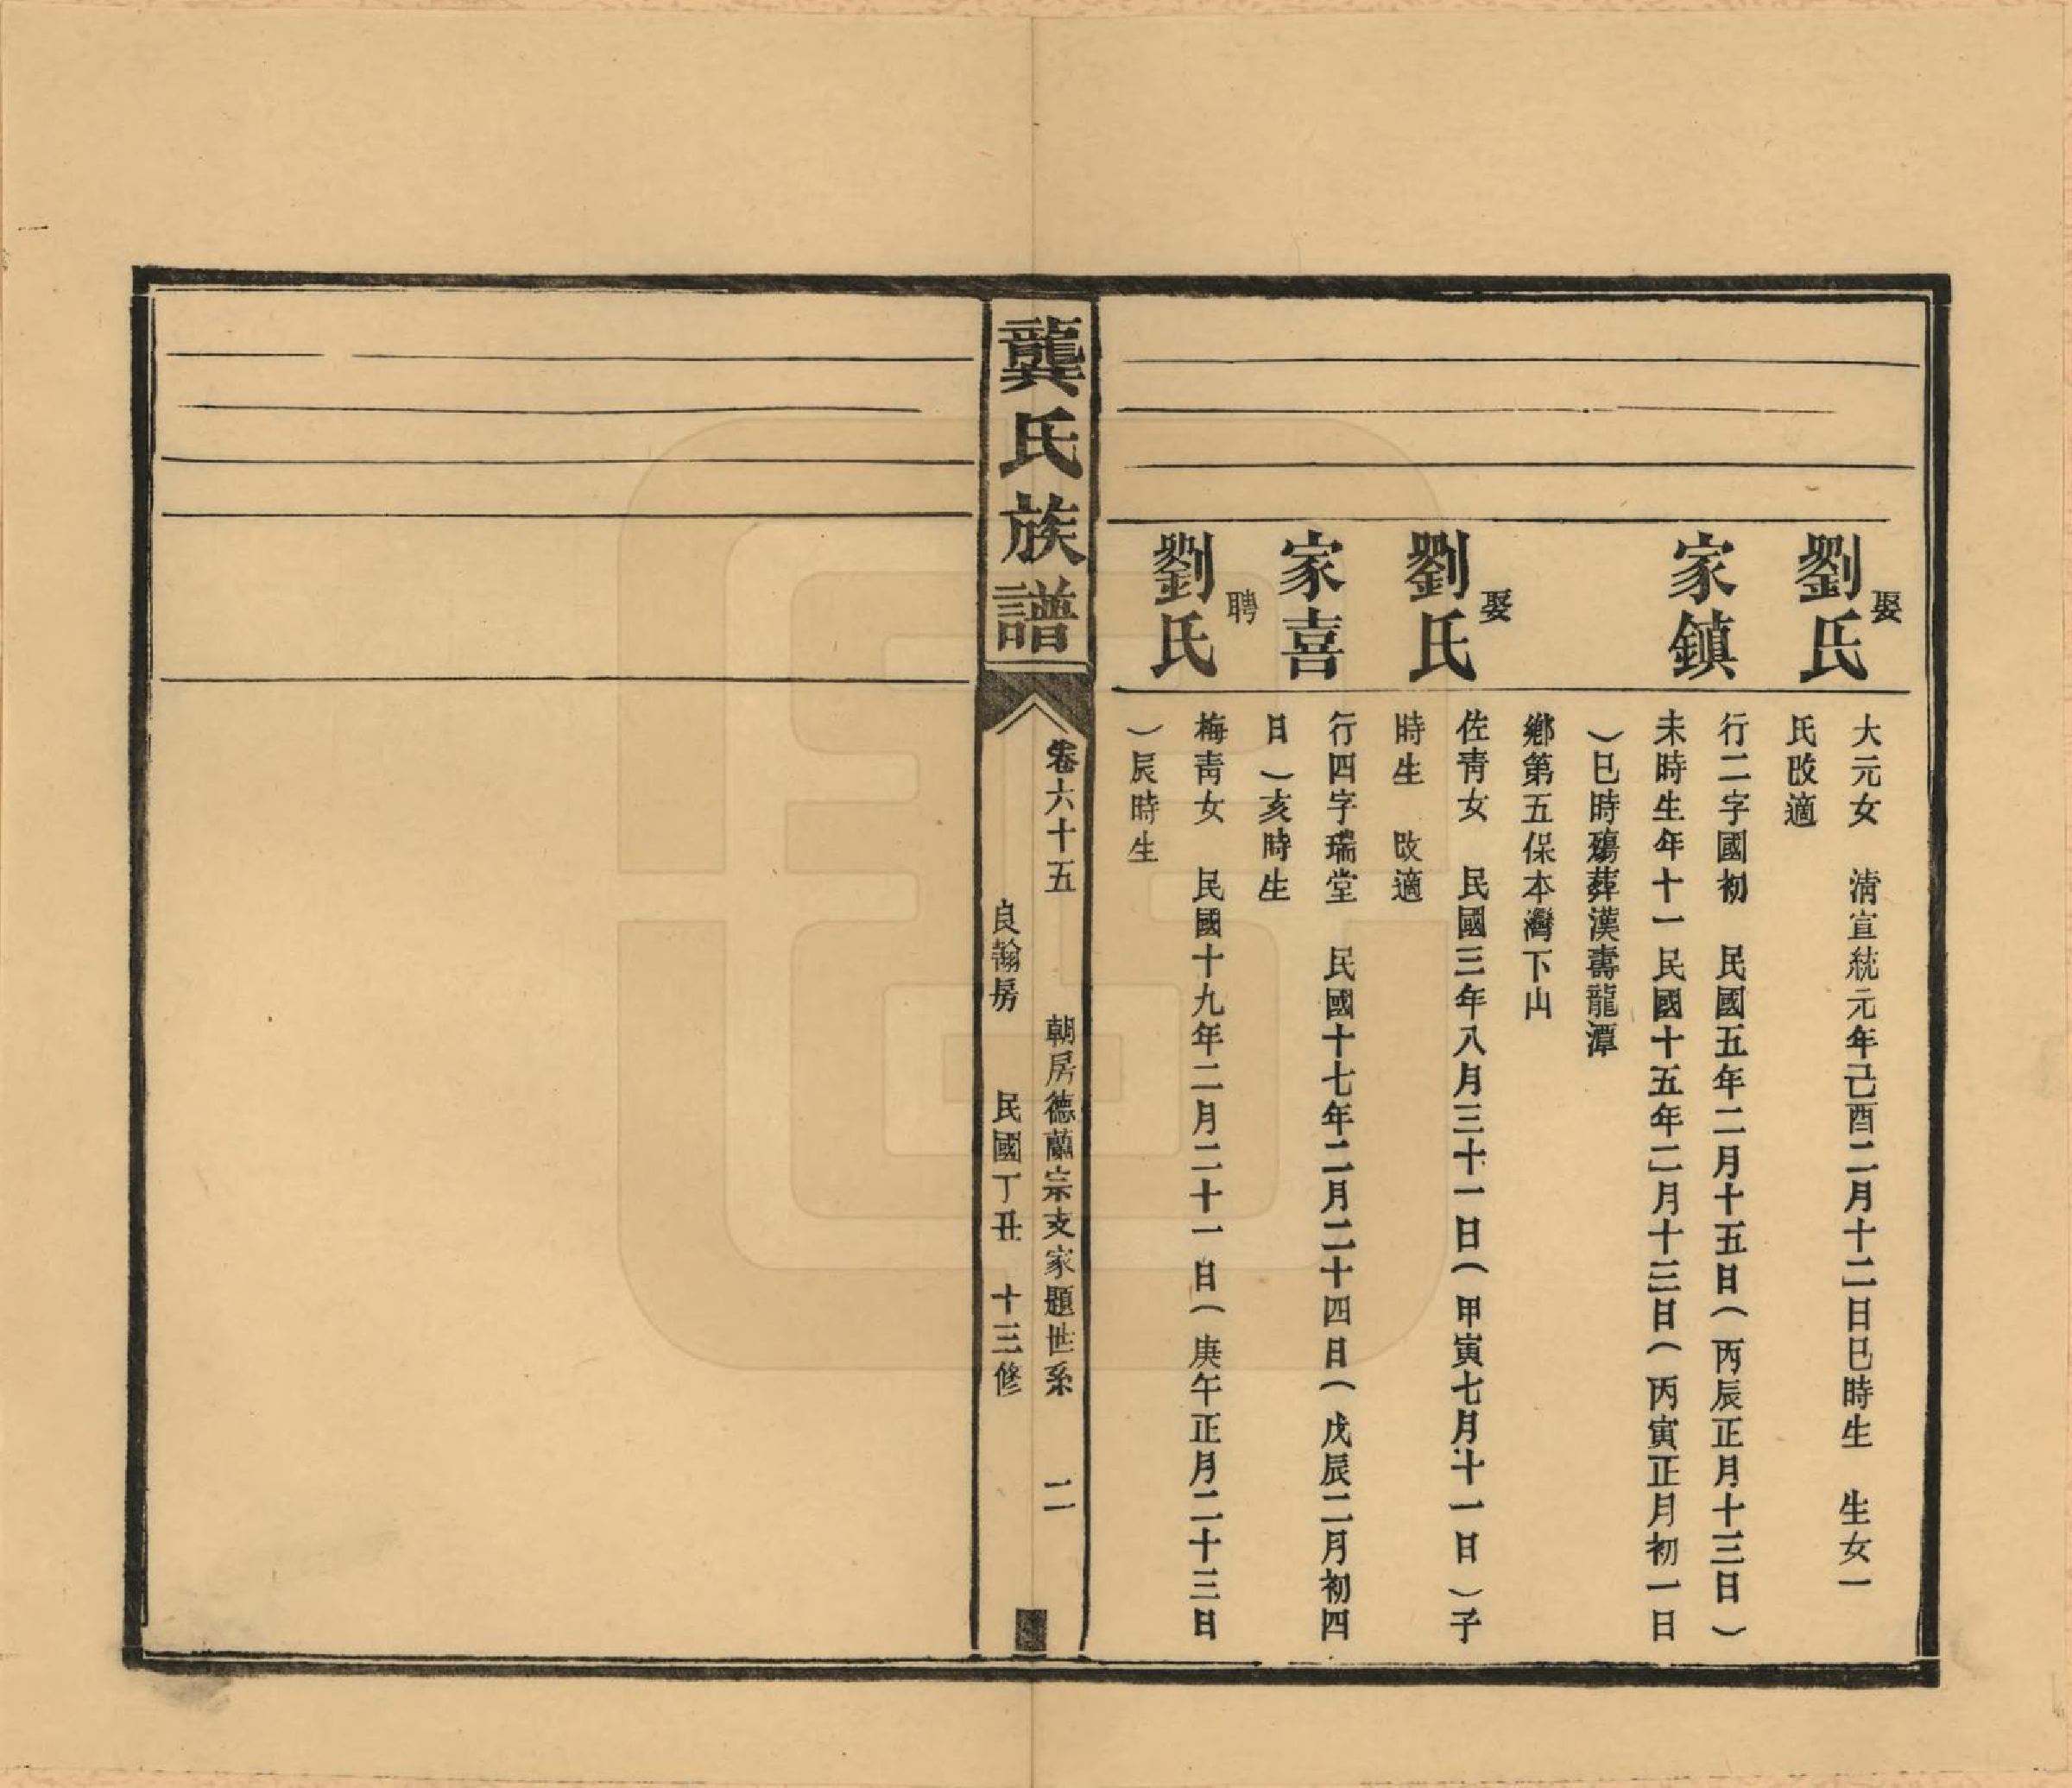 娶
劉氏
大元女　清宣統元年己酉二月十二日巳時生　生女一
氏改適
家鎮
行二字國初　民國五年二月十五日（丙辰正月十三日）
未時生年十一民國十五年二月十三日（丙寅正月初一日
）巳時殤葬漢壽龍潭
鄉第五保本灣下山
娶
劉氏
佐青女　民國三年八月三十一日（甲寅七月十一日）子
時生　改適
家喜
行四字瑞堂　民國十七年二月二十四日（戊辰二月初四
日）亥時生
聘
劉氏
梅青女　民國十九年二月二十一日（庚午正月二十三日
）辰時生
龔氏族譜
卷六十五　朝房德蘭宗支家題世系　二
良翰房　民國丁丑　十三修